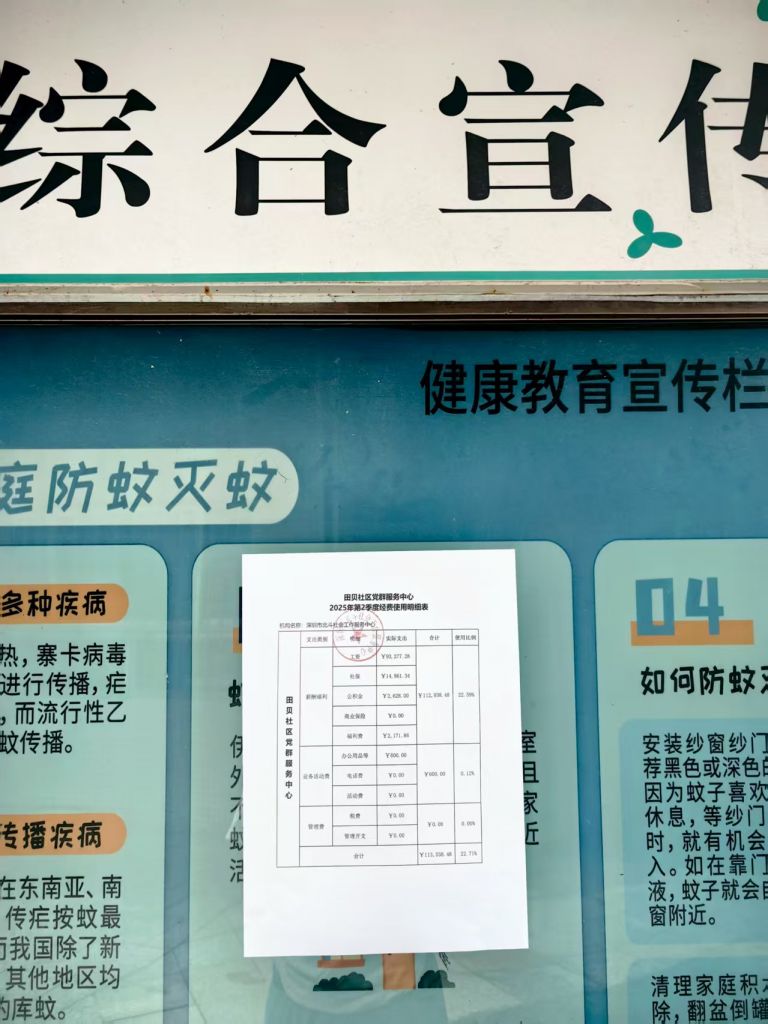 综合宣传
健康教育宣传栏
庭防蚊灭蚊
多种疾病
热，寨卡病毒
进行传播，疟
，而流行性乙
蚊传播。
传播疾病
在东南亚、南
传疟按蚊最
而我国除了新
其他地区均
的库蚊。
田贝社区党群服务中心
2025年第2季度经费使用明细表
机构名称：深圳市北斗社会工作服务中心
支出类别 实际支出 合计 使用比例
田贝社区党群服务中心
薪酬福利 工资 ¥93,277.28 ¥112,938.48 22.59%
社保 ¥14,861.34
公积金 ¥2,628.00
商业保险 ¥0.00
福利费 ¥2,171.86
业务活动费 办公用品等 ¥600.00 ¥600.00 0.12%
电话费 ¥0.00
活动费 ¥0.00
管理费 税费 ¥0.00 ¥0.00 0.00%
管理开支 ¥0.00
合计 ¥113,538.48 22.71%
蚊
伊
外
不
蚊
活
室
且
家
近
04
如何防蚊灭
安装纱窗纱门
荐黑色或深色的
因为蚊子喜欢
休息，等纱门
时，就有机会
入。如在靠门
液，蚊子就会
窗附近。
清理家庭积水
除，翻盆倒罐